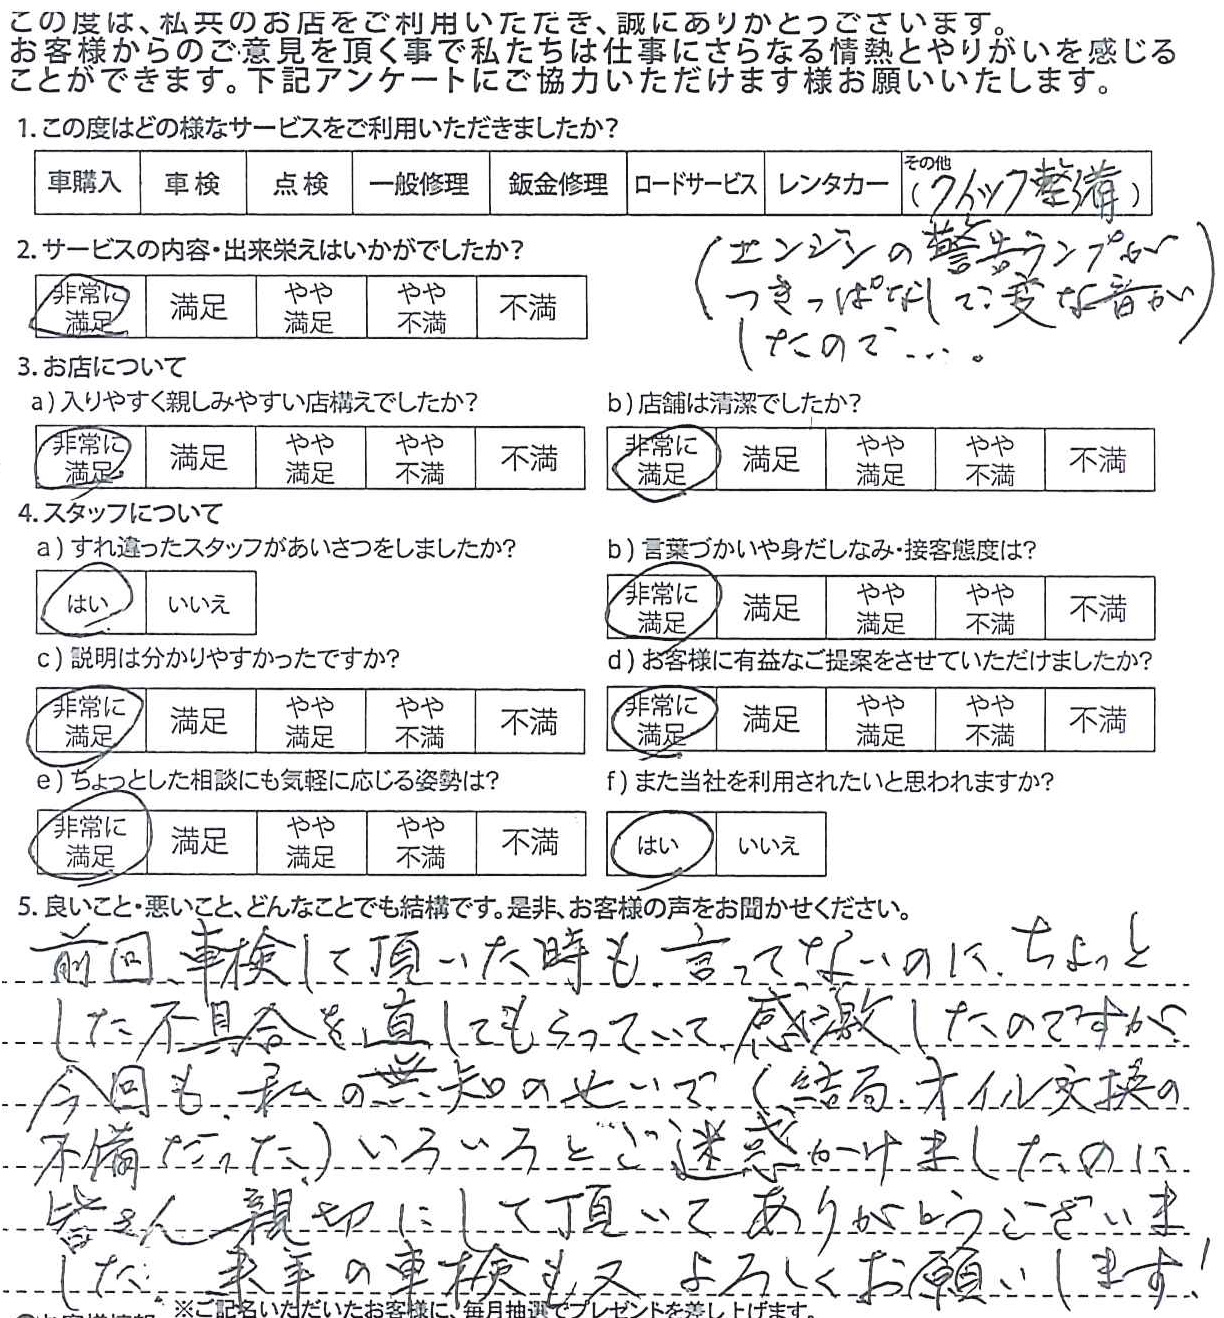 この度は、私共のお店をご利用いただき、誠にありがとうございます。
お客様からのご意見を頂く事で私たちは仕事にさらなる情熱とやりがいを感じる
ことができます。下記アンケートにご協力いただけます様お願いいたします。
1.この度はどの様なサービスをご利用いただきましたか?
車購入 車検 点検 一般修理 鈑金修理 ロードサービス レンタカー その他(クイック整備)
2.サービスの内容・出来栄えはいかがでしたか?
(エンジンの警告ランプが
つきっぱなしで、変な音が)
したので…。
非常に満足 満足 やや満足 やや不満 不満
3.お店について
a)入りやすく親しみやすい店構えでしたか?
非常に満足 満足 やや満足 やや不満 不満
b)店舗は清潔でしたか?
非常に満足 満足 やや満足 やや不満 不満
4.スタッフについて
a)すれ違ったスタッフがあいさつをしましたか?
はい いいえ
b)言葉づかいや身だしなみ・接客態度は?
非常に満足 満足 やや満足 やや不満 不満
c)説明は分かりやすかったですか?
非常に満足 満足 やや満足 やや不満 不満
d)お客様に有益なご提案をさせていただけましたか?
非常に満足 満足 やや満足 やや不満 不満
e)ちょっとした相談にも気軽に応じる姿勢は?
非常に満足 満足 やや満足 やや不満 不満
f)また当社を利用されたいと思われますか?
はい いいえ
5.良いこと・悪いこと、どんなことでも結構です。是非、お客様の声をお聞かせください。
前回、車検して頂いた時も、言ってないのに、ちょっと
した不具合を直してもらっていて、感激したのですが
今回も、私の無知のせいで、(結局、オイル交換の
不備だった)いろいろとご迷惑かけましたのに
皆さん親切にして頂いてありがとうございま
した。来年の車検も又よろしくお願いします!
※ご記名いただいたお客様に、毎月抽選でプレゼントを差し上げます。